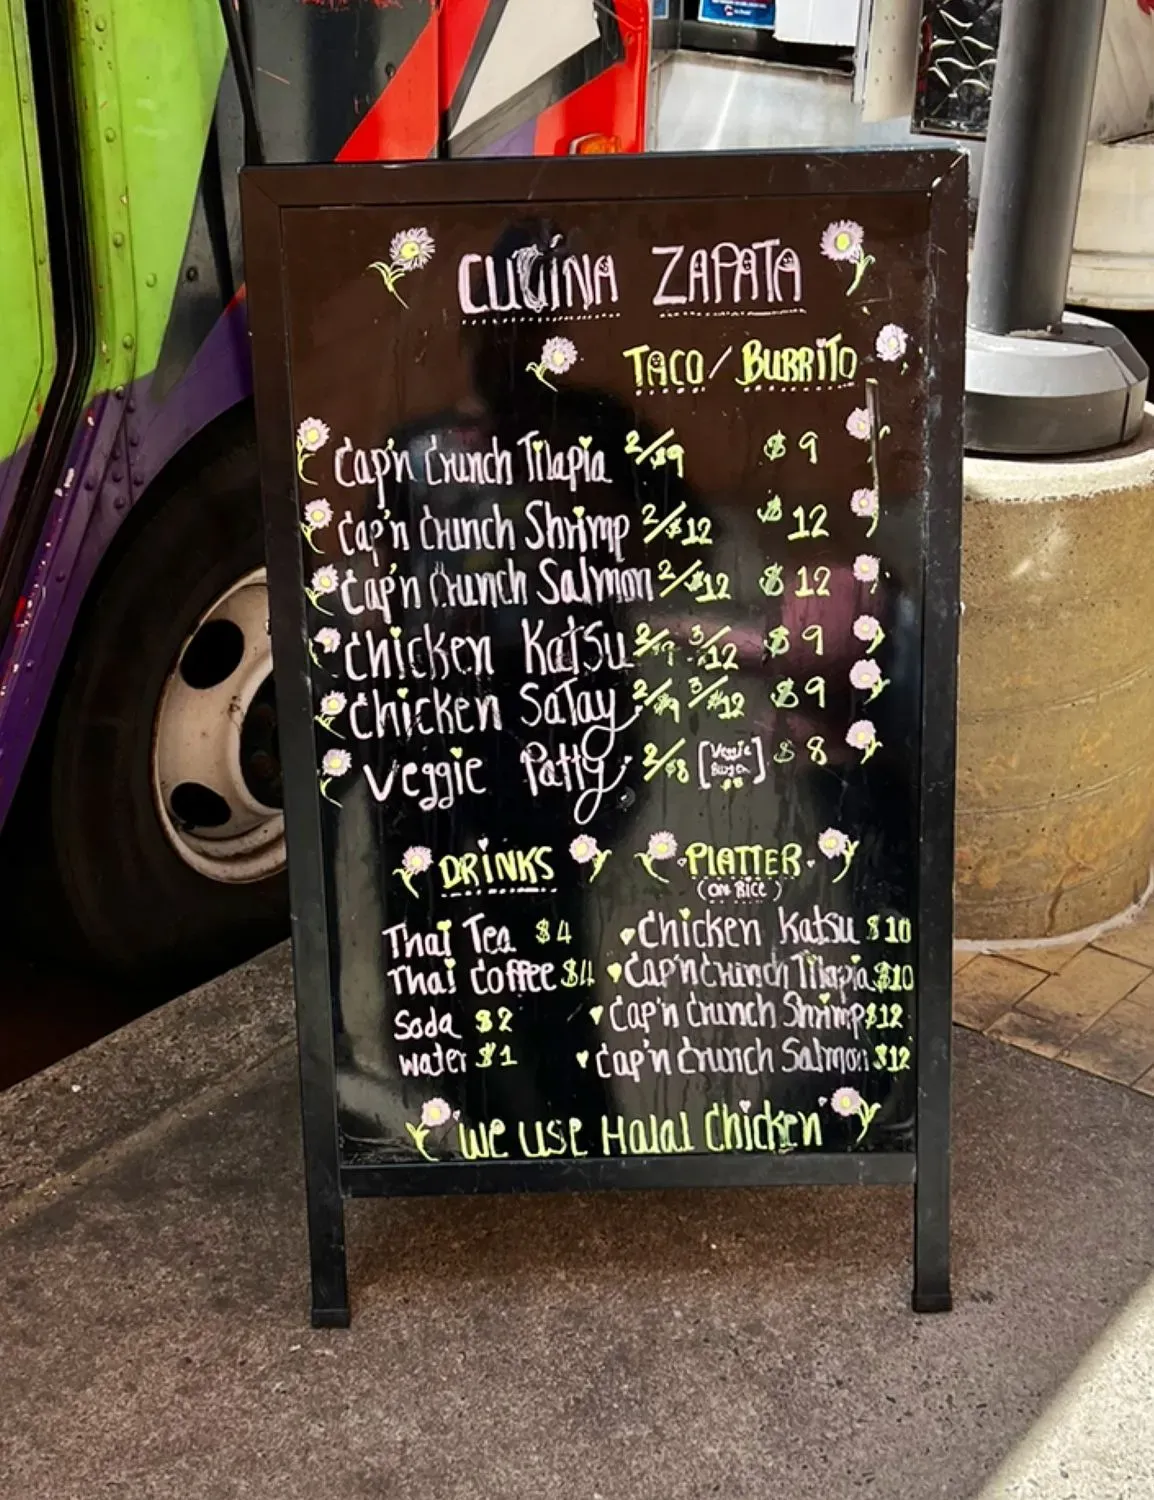 CUCINA ZAPATA
TACO / BURRITO
Cap'n Crunch Tilapia 2/$9 $9
Cap'n Crunch Shrimp 2/$12 $12
Cap'n Crunch Salmon 2/$12 $12
Chicken Katsu 2/$9 3/12 $9
Chicken Satay 2/$9 3/$12 $9
Veggie Patty 2/$8 [Veggie Burger $8] $8
DRINKS
Thai Tea $4
Thai Coffee $4
Soda $2
water $1
PLATTER
(ON RICE)
Chicken Katsu $10
Cap'n Crunch Tilapia $10
Cap'n Crunch Shrimp $12
Cap'n Crunch Salmon $12
WE USE Halal Chicken